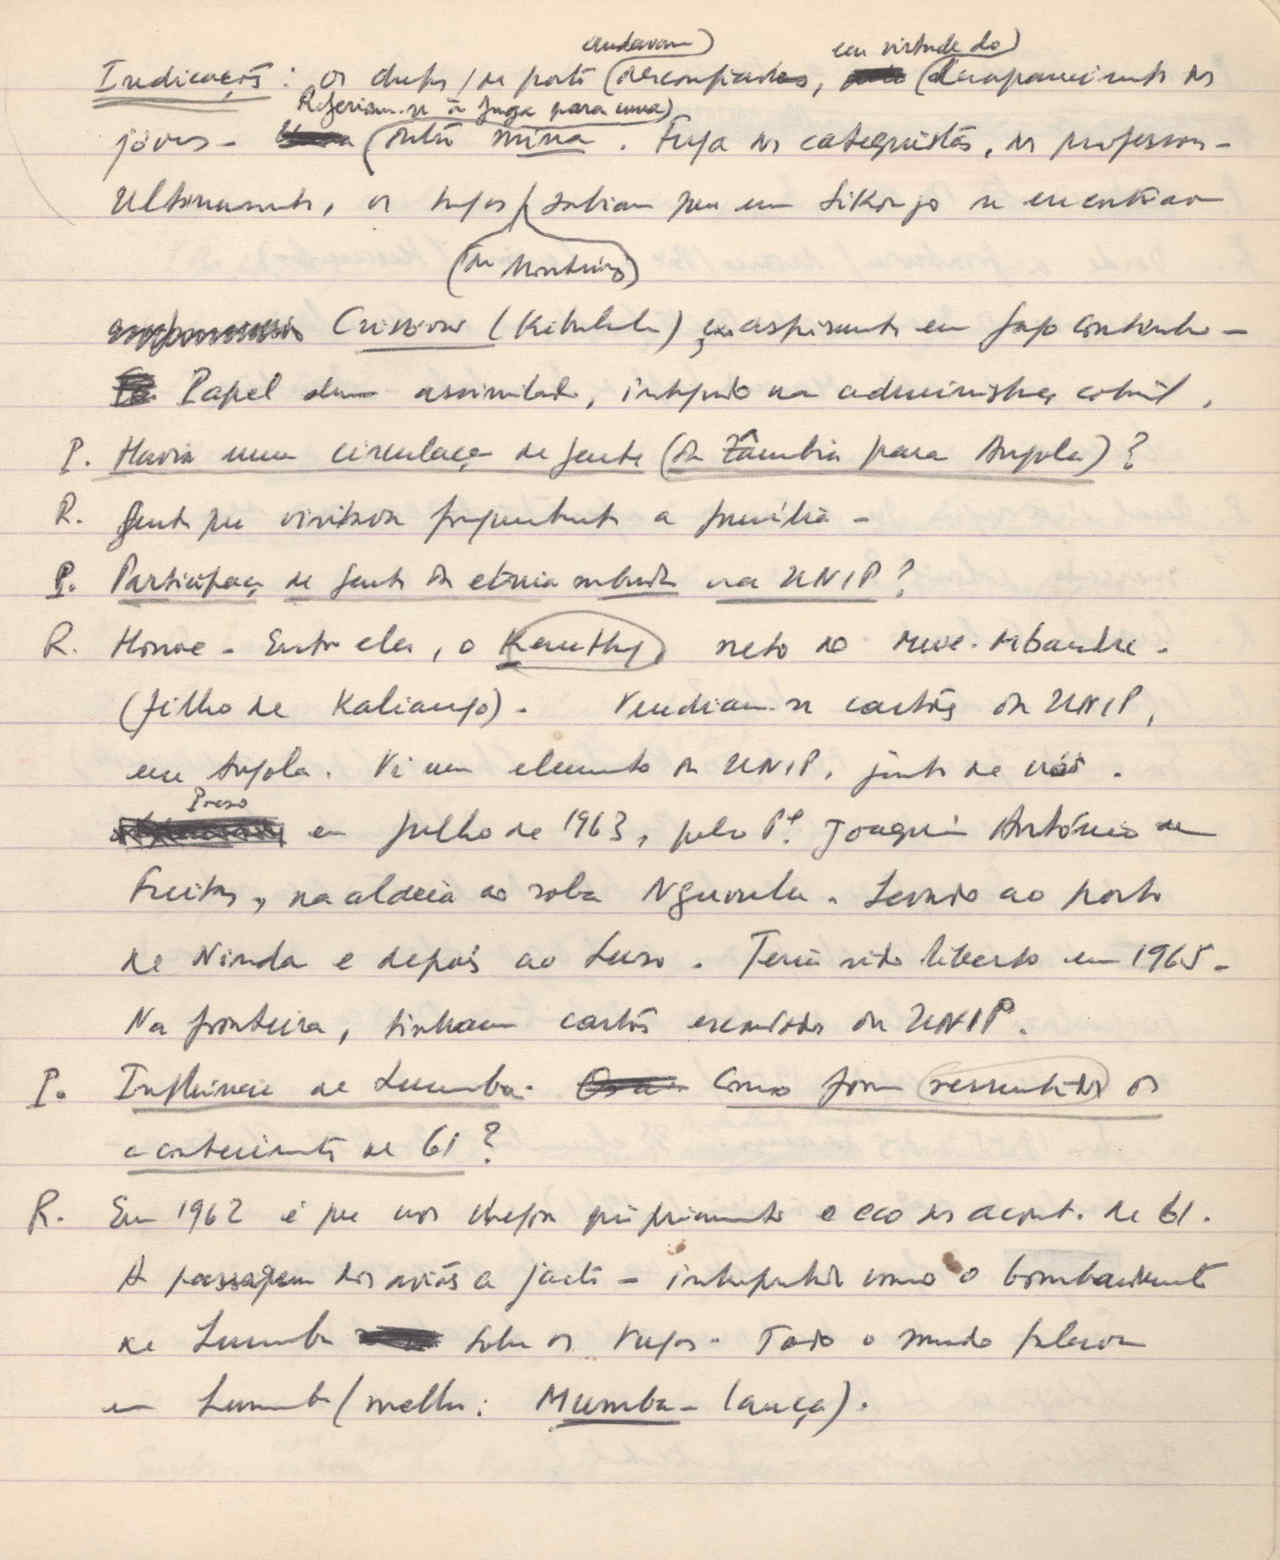 andavam) em virtude do)
Indicações: os chefes/de posto (desconfiados, (desaparecimento dos
Referiam-se à fuga para uma)
jovens - (outra mina. Fuga dos catequistas, dos professores -
Ultimamente, os tugas sabiam que em Sikongo se encontravam
(de Monteiro)
(Kabulula) ex aspirante em
Papel dum assimilado, integrado na administraç colonial.
P. Havia uma circulaç de gente (da Zâmbia para Angola)?
R. Gente que visitava frequentemente a família -
P. Participaç de gente da etnia mbunda na UNIP?
R. Houve - Entre eles, o neto do Mwe-Mbandu.
(filho de Kaliango). Vendiam-se cartões da UNIP,
em Angola. Vi um elemento da UNIP, junto de nós.
Preso
em Julho de 1963, pelo Pe. Joaquim António de
Freitas, na aldeia do soba . Levado ao posto
de Ninda e depois ao Luso. Teria sido liberto em 1965 -
Na fronteira, tinham cartões da UNIP.
P. Influência de Lumumba. Como foram ressentidos os
acontecimentos de 61?
R. Em 1962 é que nos chegou o eco dos acont. de 61.
A passagem dos aviões a jacto - interpretada como o bombardeamento
de Lumumba sobre os tugas. Todo o mundo falava
em Lumumba (melhor: Mumba - lança).